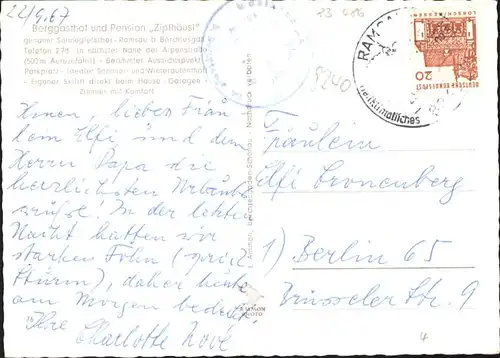 22/9.67
Berggasthof und Pension „Zipfhäusl"
genannt Sonnleitner - Ramsau b. Berchtesgaden
Telefon 278 In nächster Nähe der Alpenstraße
(500m Aufwärts) - Berühmter Aussichtspunkt
Parkplatz - Idealer Sommer- und Winteraufenthalt
- Eigener Skilift direkt beim Hause - Garagen -
Zimmer mit Komfort
Ihnen, lieben Fräu
lein Elfi und dem
Herrn Papa die
herzlichsten Urlaubs
grüße! In der letzten
Nacht hatten wir
starken Föhn
Sturm), daher heute
am Morgen bedeckt.
Ihre Charlotte
23 486
8240
RAMSAU
heilklimatisches
DEUTSCHE BUNDESPOST
20
LORSCH HESSEN
Fräulein
Elfi Cronenberg
1) Berlin 65
Brüsseler Str. 9
4